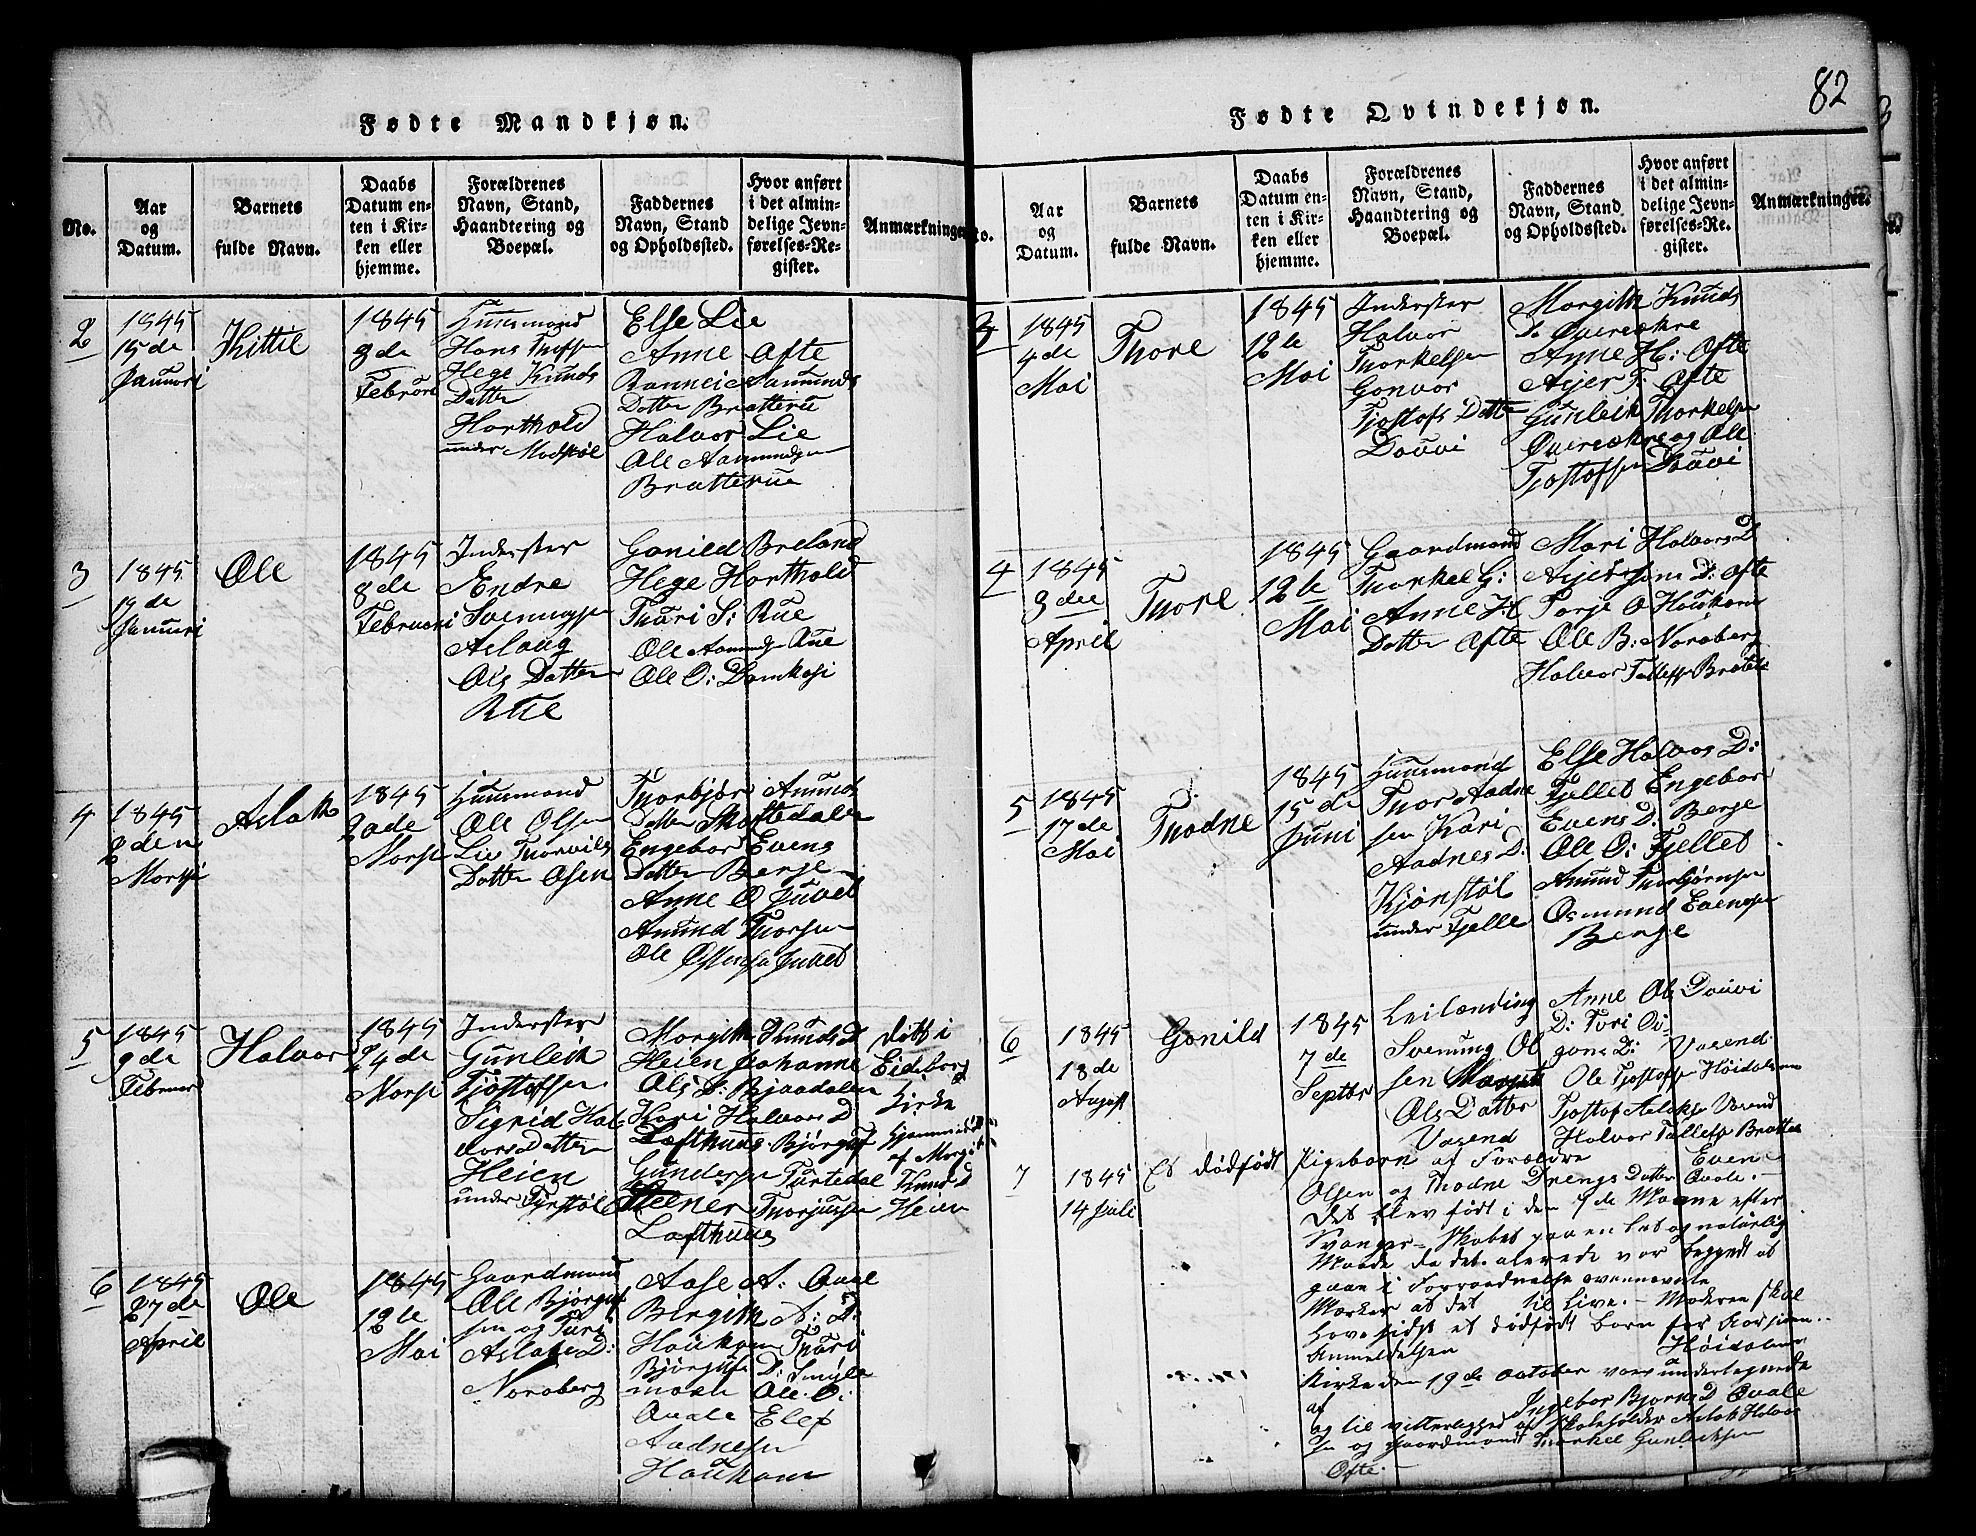 82
Fødte Mandkjøn.
No.
Aar
og
Datum.
Barnets
fulde Navn.
Daabs
Datum en-
ten i Kir-
ken eller
hjemme.
Forældrenes
Navn, Stand,
Haandtering og
Boepæl.
Faddernes
Navn, Stand
og Opholdssted.
Hvor anført
i det almin-
delige Jevn-
førelses-Re-
gister.
Anmærkninger
2
1845
15de
Januari
Kittil
1845
8de
Februari
Huusmand
Hans
Hege Knuds
Datter
Horthold
under
Else Lie
Anne Ofte
Rannei Aamunds
Datter Bratterue
Halvor Lie
Ole Aamundsen
Bratterue
3
1845
19de
Januari
Ole
1845
8de
Februari
Inderster
Endre
Svenungsen
Aslaug
Ols Datter
Rue
Gonild Breland
Hege Horthold
Tuari S: Rue
Ole Aamundsen Rue
Ole O:
4
1845
2den
Morsi
Aslak
1845
20de
Morsi
Huusmand
Ole Olsen
Liv Thorvils
Datter Osen
Thorbjør Amunds
Datter Skottedalen
Engebor Evens
Datter Berge
Anne O Juvet
Amund Thorsen
Ole Juvet
5
1845
9de
Februar
Halvor
1845
24de
Morsi
Inderster
Gunleik
Tjostofsen
Sigrid Hal
vors Datter
Heien
under
Morgith Knuds D
Heien Johanne
Ols D: Bjaadalen
Kari Halvors D
Lofthuus. Bjørguf
Gundersen Turtedal
Steener Thorjussen
Lofthuus
Døbt i
Eidsborg
Kirke
af Morgit
Knuds D
Heien
6
1845
27de
April
Ole
1845
12te
Mai
Gaardmand
Ole Bjørguf
sen og Turi
Aslaks D:
Noraberg
Aase A: Qvale
Bergith A: D:
Houkom Tuari
Bjørgufs D:
Ole O:
Qvale Elef
Aadnesen
Houkom
Fødte Qvindekjøn.
No.
Aar
og
Datum.
Barnets
fulde Navn.
Daabs
Datum en-
ten i Kir-
ken eller
hjemme.
Forældrenes
Navn, Stand,
Haandtering og
Boepæl.
Faddernes
Navn, Stand
og Opholdssted.
Hvor anført
i det almin-
delige Jevn-
førelses-Re-
gister.
Anmærkninger.
3
1845
4de
Mai
Thore
1845
12te
Mai
Inderster
Halvor
Thorkelsen
Gonvor
Tjostofs Datter
Douvi
Morgith Knuds
D. Øvereökre
Anne H: Ofte
Asjer T: Ofte
Gunleik Thorkelsen
Øvereökre og Ole
Tjostofsen Douvi
4
1845
9de
April
Thore
1845
12te
Mai
Gaardmand
Thorkel G:
Anne H
Datter Ofte
Mari Halvors D
D: Ofte
Torje O Houkom
Ole B: Noraberg
Halvor Tallefs
5
1845
17de
Mai
Thodne
1845
15de
Juni
Huusmand
Thor Aadne
sen Kari
Aadnes D:
Kjønstøl
under Fjelle
Else Halvos D:
Fjellet Engebor
Evens D: Berge
Ole O: Fjellet
Amund Thorbjørnsen
Osmund Evensen
Berge
6
1845
18de
August
Gonild
1845
7de
Septbr
Leilænding
Svenung Ol
sen Margit
Ols Datter
Vasend
Anne Ols Douvi
D: Tori
gons D: Vasend
Ole Tjostofsen Høidalsmo
Tjostof Aslaks Vasend
Halvor Tallefs
7
1845
14 Juli
Et dødfødt
Pigebarn af Forældre Even
Olsen og Thodne Drengs Datter Qvale.
Det blev født i den 7de Maane efter
Svanger-Skabet paa en Let og naturlig
Maade da det alerede var begyndt at
gaae i Forraadnelse
Mærker at det til Live. Moderen skal
have sidst et dødfødt barn før
Anmeldelsen Høidalsmo
Kirke den 19de October vare undertegnede
af Ingebor Bjorns D Qvale
og til vitterlighed af Skoleholder Aslak Halvor
sen og Gaardmand Thorkel Gunleiksen
Ofte.